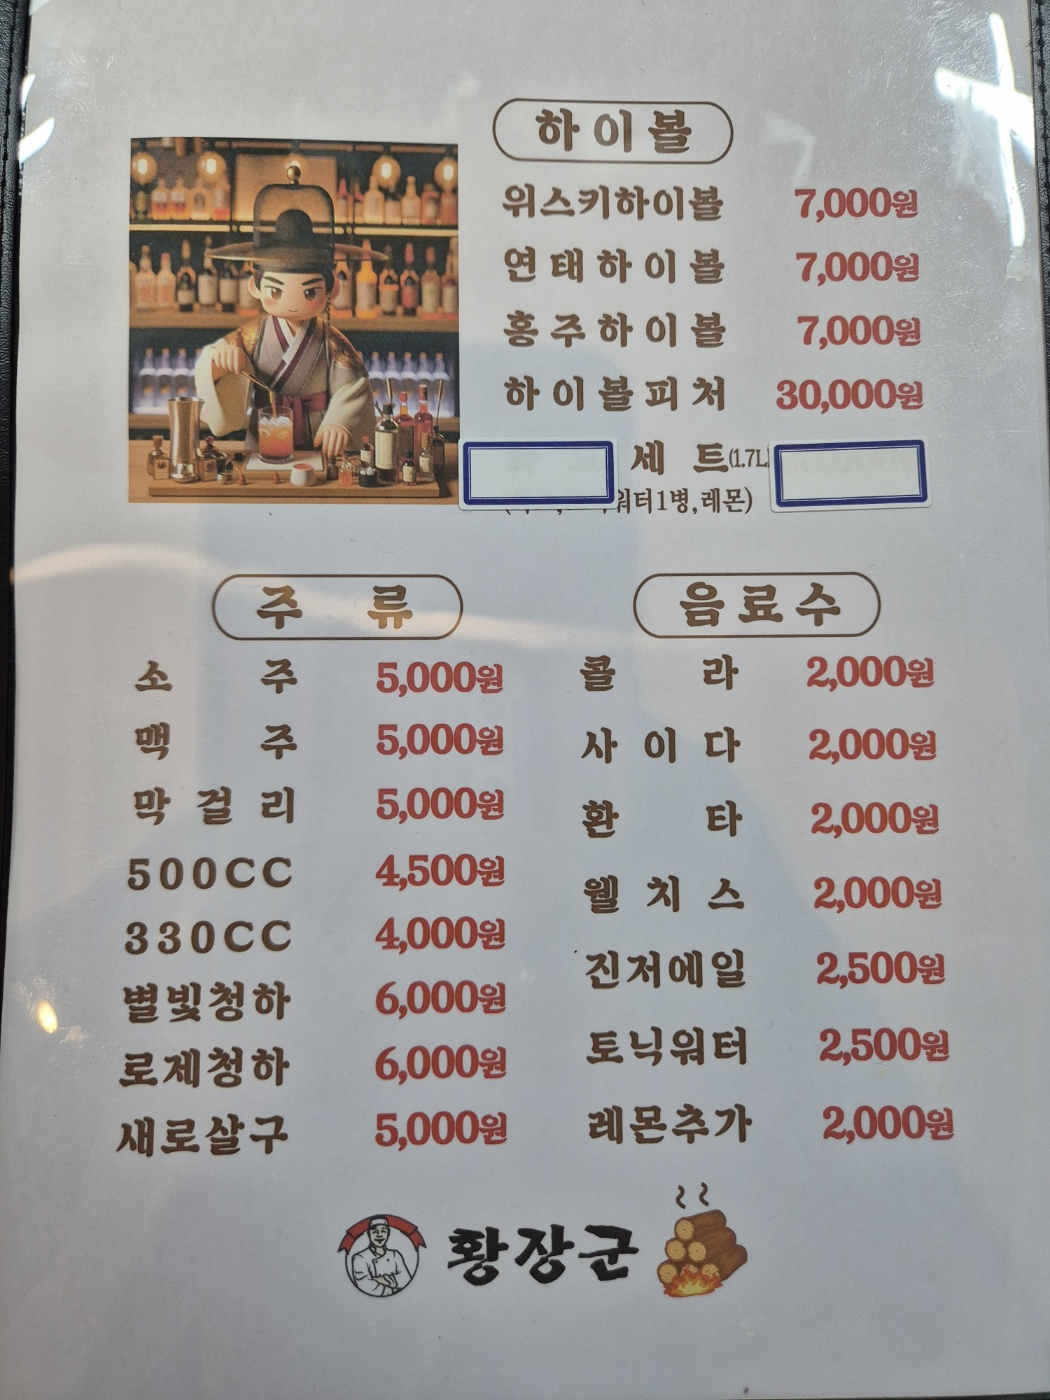 하이볼
위스키하이볼 7,000원
연태하이볼 7,000원
홍주하이볼 7,000원
하이볼피처 30,000원
세트(1.7L
워터1병,레몬)
주류
소주 5,000원
맥주 5,000원
막걸리 5,000원
500CC 4,500원
330CC 4,000원
별빛청하 6,000원
로제청하 6,000원
새로살구 5,000원
음료수
콜라 2,000원
사이다 2,000원
환타 2,000원
웰치스 2,000원
진저에일 2,500원
토닉워터 2,500원
레몬추가 2,000원
황장군